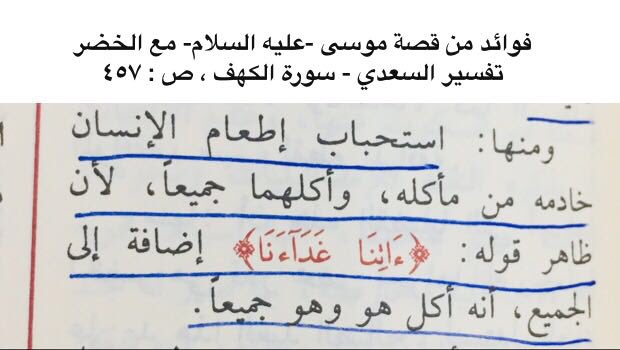 فوائد من قصة موسى -عليه السلام- مع الخضر
تفسير السعدي - سورة الكهف ، ص : ٤٥٧
ومنها: استحباب إطعام الإنسان
خادمه من مأكله، وأكلهما جميعاً، لأن
ظاهر قوله: ﴿ءَاتِنَا غَدَآءَنَا﴾ إضافة إلى
الجميع، أنه أكل هو وهو جميعاً.